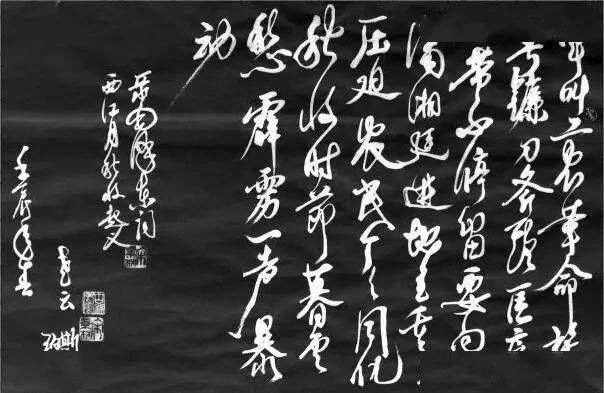 军叫工农革命旗
号镰刀斧头匡庐
带不停留要向
潇湘进地主重
压迫农民个个同仇
秋收时节暮云
愁霹雳一声暴
动
毛泽东词
西江月秋收起义
云
壬辰年春